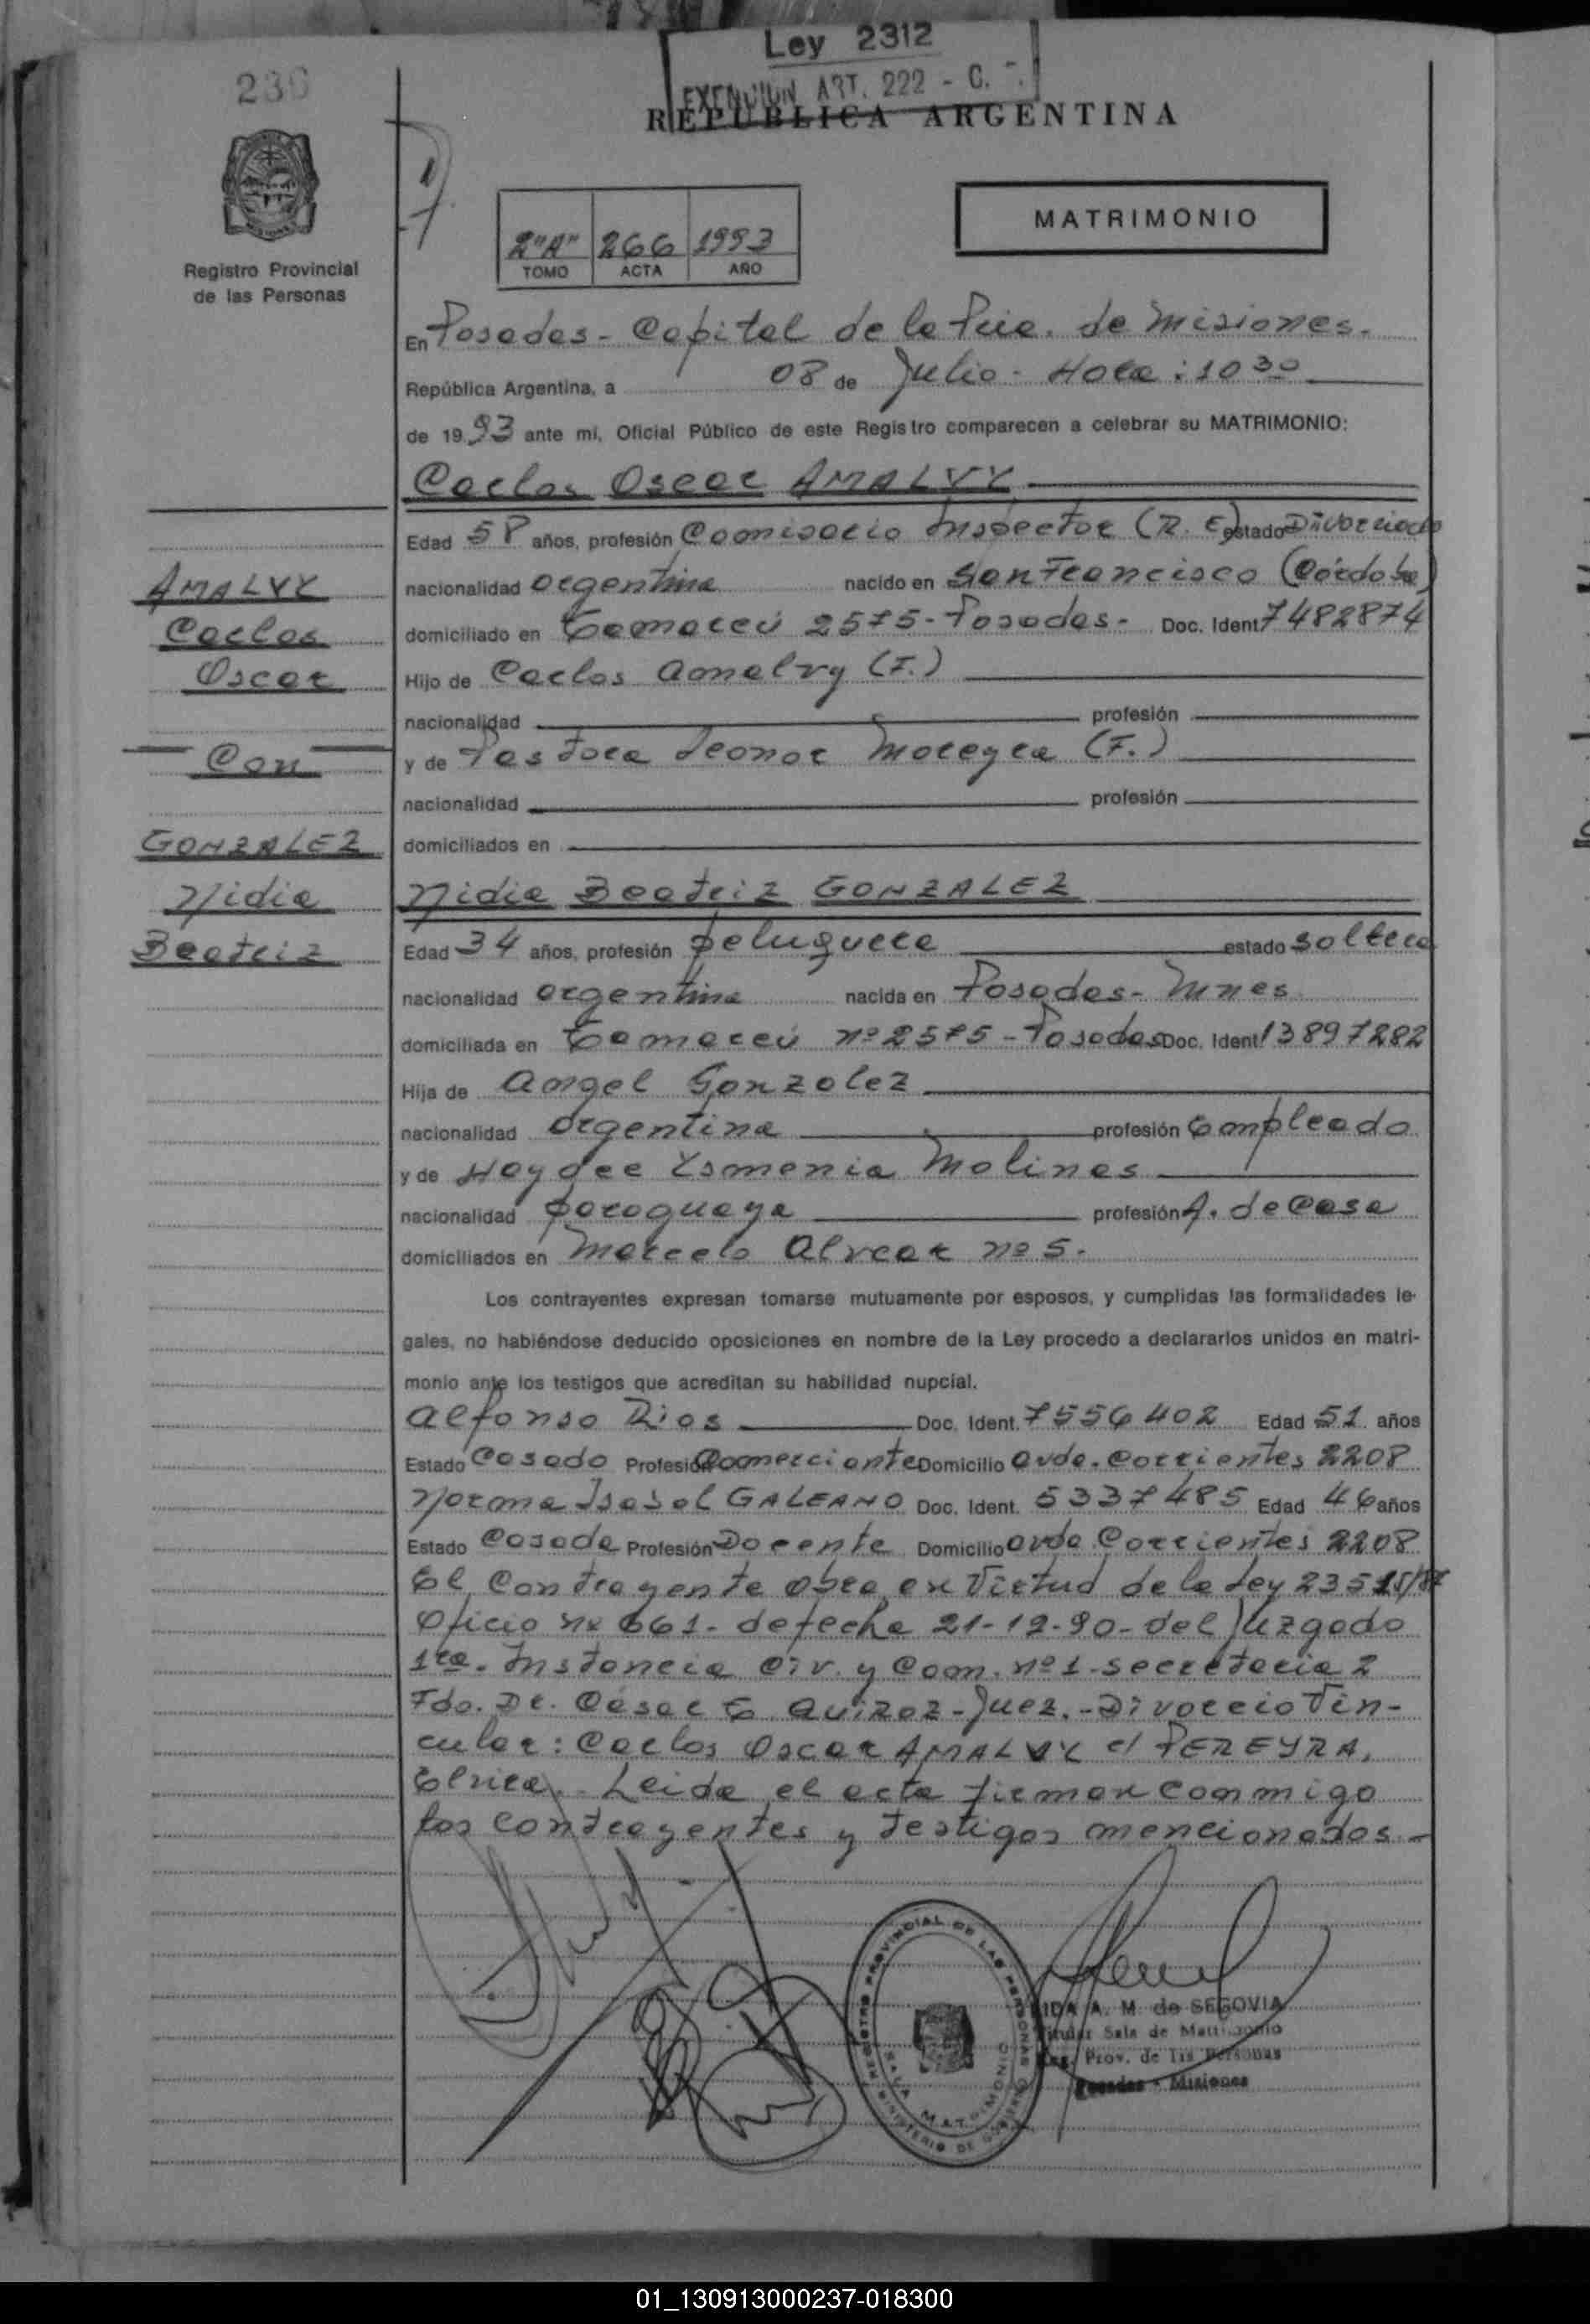 Ley 2312
EXENCION ART. 222 - C.
230
REPUBLICA ARGENTINA
Registro Provincial
de las Personas
2"A" 266 1993
TOMO ACTA AÑO
MATRIMONIO
En Posadas - Capital de la Pcia. de Misiones.
República Argentina, a 08 de Julio - Hora: 10 30
de 19 93 ante mi, Oficial Público de este Registro comparecen a celebrar su MATRIMONIO:
Carlos Oscar AMALVY
Edad 58 años, profesión Comisario Inspector (R. E) estado Divorciado
AMALVY
nacionalidad argentina nacido en San Francisco (Córdoba)
Carlos
domiciliado en Tamareu 2575 - Posadas - Doc. Ident 7482874
Oscar
Hijo de Carlos Amalvy (F.)
nacionalidad profesión
Con
y de Pastora Leonor Moreyra (F.)
nacionalidad profesión
GONZALEZ
domiciliados en
Nidia
Nidia Beatriz GONZALEZ
Beatriz
Edad 34 años, profesión peluquera estado soltera
nacionalidad argentina nacida en Posadas - Mnes
domiciliada en Tamareu nº 2575 - Posadas Doc. Ident 13897282
Hija de Angel Gonzalez
nacionalidad argentina profesión Empleado
y de Haydee Ysmenia Molinas
nacionalidad paraguaya profesión A. de Casa
domiciliados en Marcelo Alvear nº 5.
Los contrayentes expresan tomarse mutuamente por esposos, y cumplidas las formalidades le-
gales, no habiéndose deducido oposiciones en nombre de la Ley procedo a declararlos unidos en matri-
monio ante los testigos que acreditan su habilidad nupcial.
Alfonso Rios Doc. Ident. 7556402 Edad 51 años
Estado Casado Profesión Comerciante Domicilio Avda. Corrientes 2208
Norma Isabel GALEANO Doc. Ident. 5337485 Edad 46 años
Estado Casada Profesión Docente Domicilio Avda Corrientes 2208
El Contrayente obra en Virtud de la Ley 23515/87
Oficio nº 661 - de fecha 21-12-90 - del Juzgado
1ra. Instancia Civ. y Com. nº 1 - secretaria 2
Fdo. Dr. César E. QUIROZ - Juez. - Divorcio Vin-
cular: Carlos Oscar AMALVY c/ PEREYRA,
Elvira. - Leida el acta firman conmigo
los contrayentes y testigos mencionados -
REGISTRO PROVINCIAL DE LAS PERSONAS
SALA MATRIMONIO
MINISTERIO DE GOBIERNO
A. M. de SEGOVIA
Titular Sala de Matrimonio
Reg. Prov. de las Personas
Posadas - Misiones
01_130913000237-018300